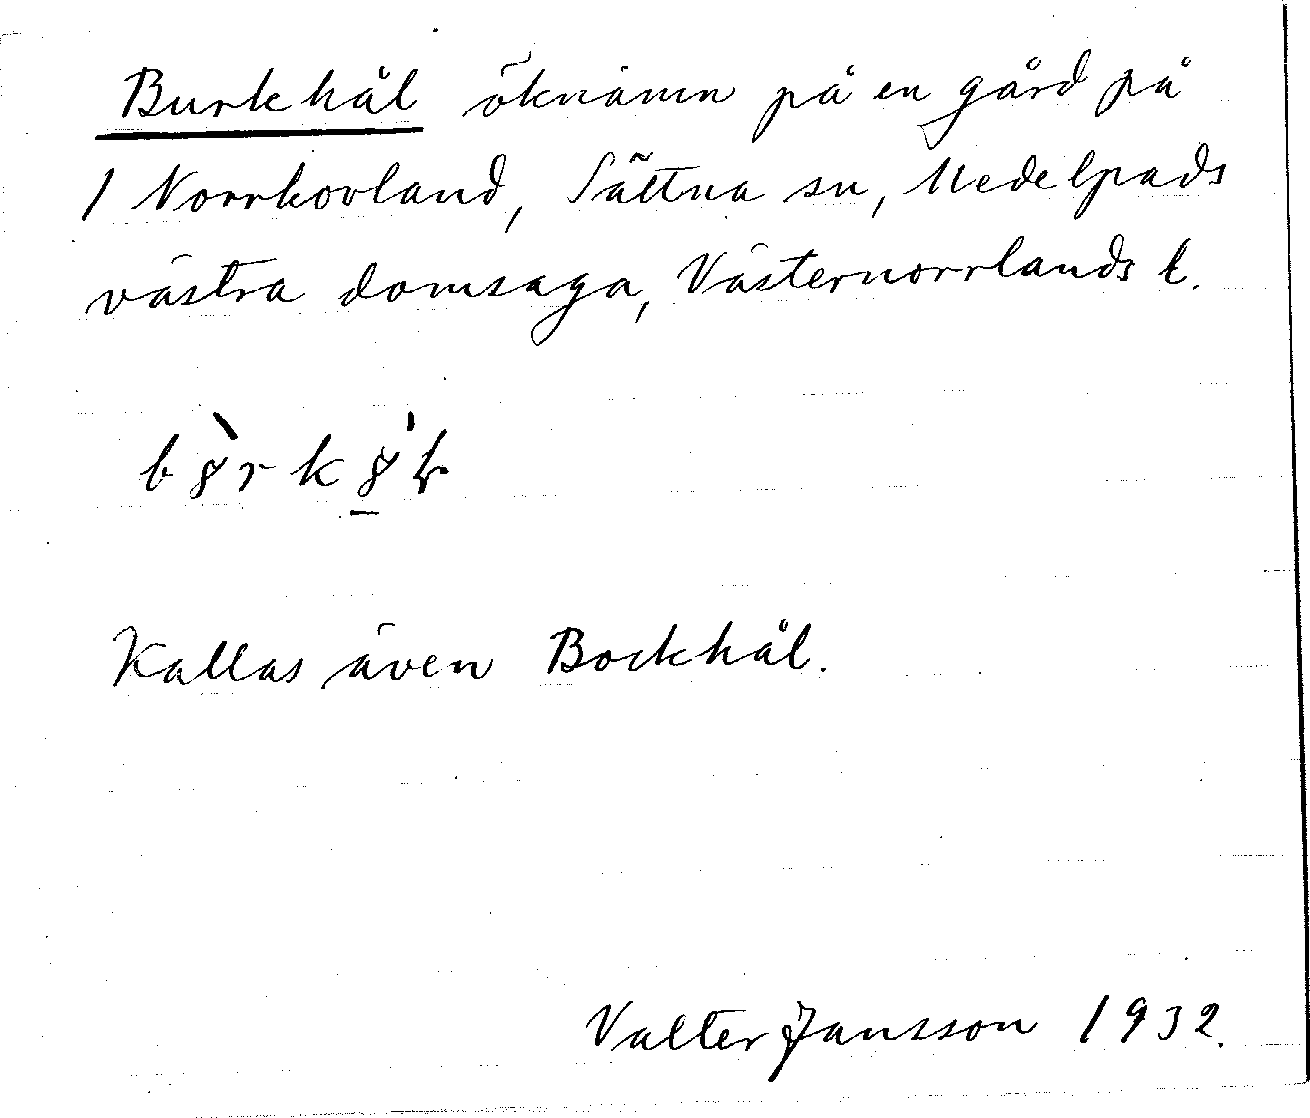 Burkhål öknämn på en gård på
/ Norrkovland, Sättna sn, Medelpads
västra domsaga, Västernorrlands l.
Kallas även Bockhål.
Valter Jansson 1932.